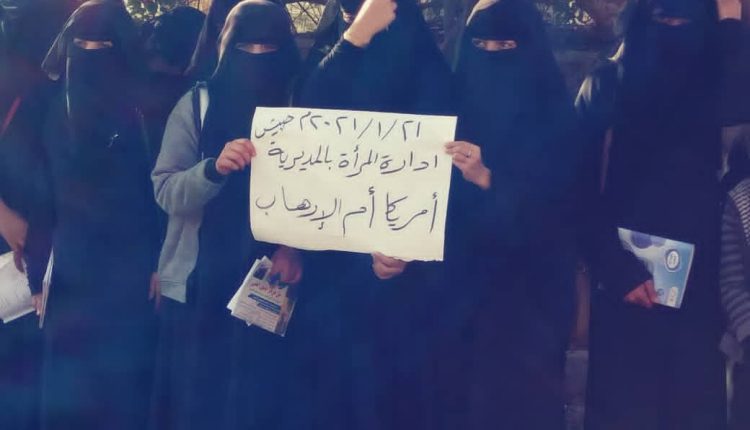 ٢١/١/٢٠٢١م حبيش
ادارة المرأة بالمديرية
أمريكا أم الإرهاب